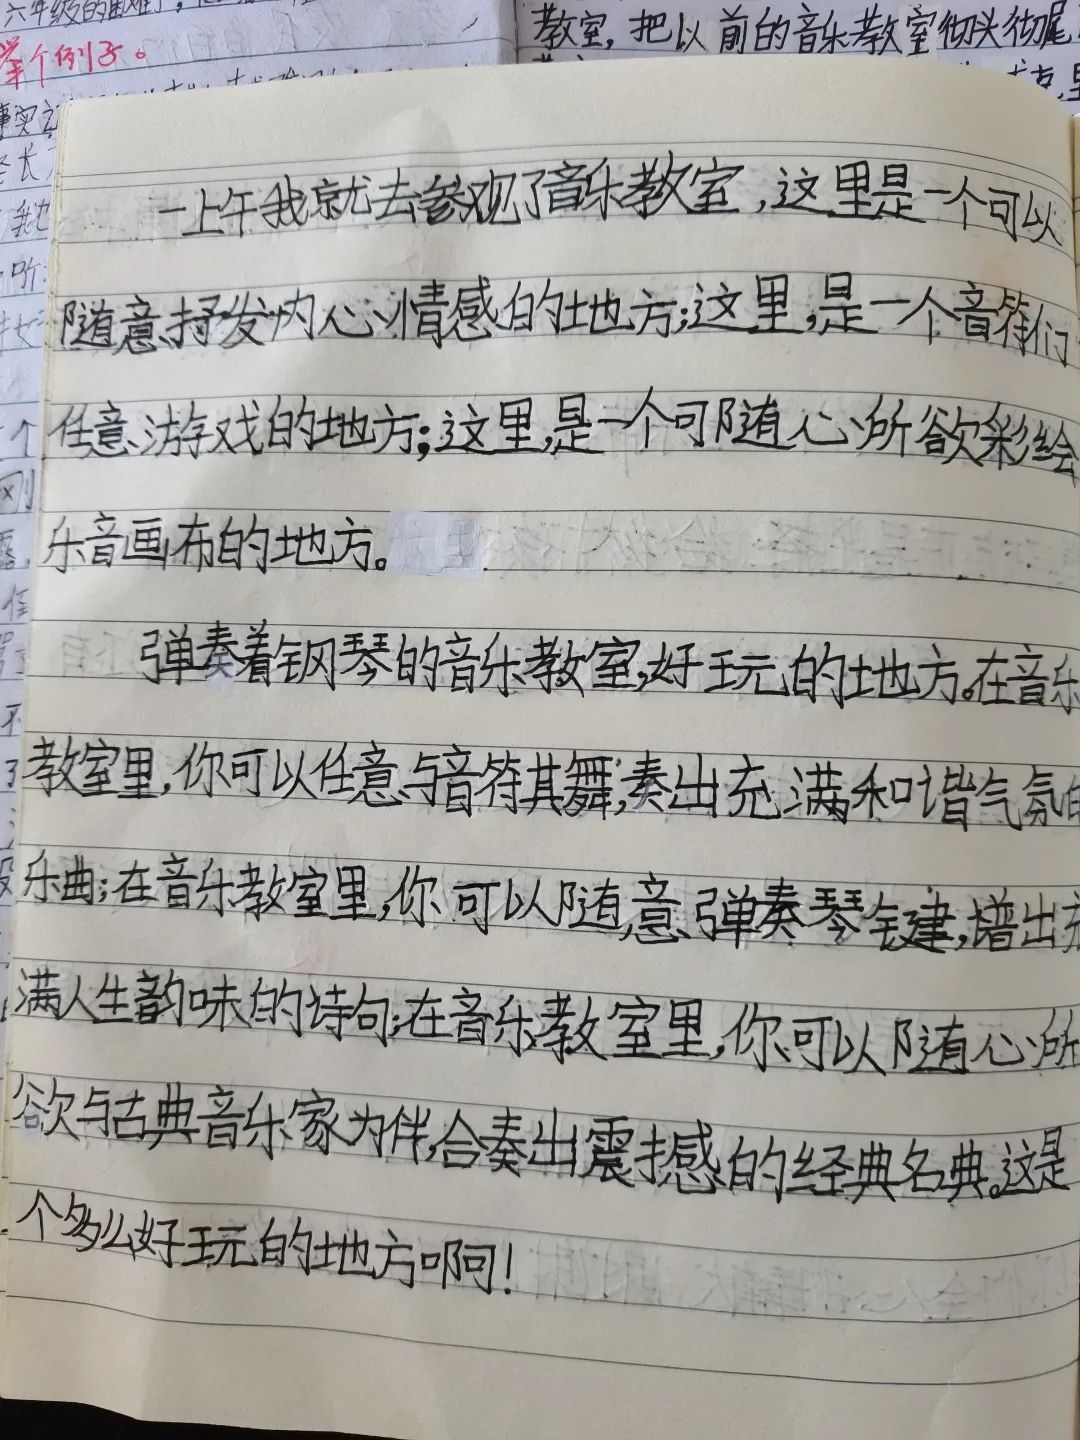 六年级的困难
举个例子。
教室，把以前的音乐教室彻头彻尾
一上午我就去参观了音乐教室，这里是一个可以
随意抒发内心情感的地方；这里，是一个音符们
任意游戏的地方；这里，是一个可随心所欲彩绘
乐音画布的地方。
弹奏着钢琴的音乐教室，好玩的地方。在音乐
教室里，你可以任意与音符其舞，奏出充满和谐气氛的
乐曲；在音乐教室里，你可以随意弹奏琴键，谱出充
满人生韵味的诗句；在音乐教室里，你可以随心所
欲与古典音乐家为伴，合奏出震撼的经典名典。这是
个多么好玩的地方啊！